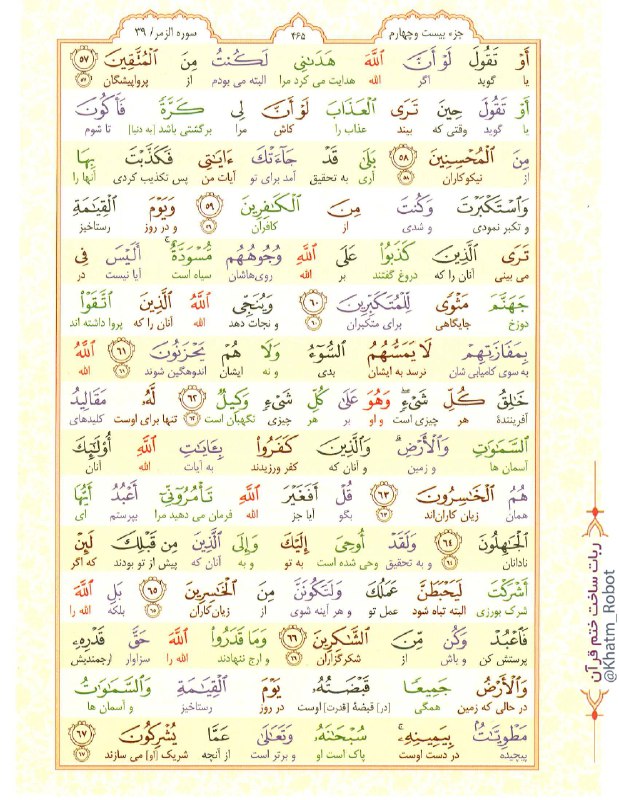 جزء بیست وچهارم
۴۶۵
سوره الزمر/ ۳۹
أَوۡ تَقُولَ لَوۡ أَنَّ ٱللَّهَ هَدَىٰنِي لَكُنتُ مِنَ ٱلۡمُتَّقِينَ ۵۷
یا گوید اگر الله هدایت می کرد مرا البته می بودم از پرواپیشگان
أَوۡ تَقُولَ حِينَ تَرَى ٱلۡعَذَابَ لَوۡ أَنَّ لِي كَرَّةٗ فَأَكُونَ
یا گوید وقتی که بیند عذاب را کاش مرا برگشتی باشد [به دنیا] تا شوم
مِنَ ٱلۡمُحۡسِنِينَ ۵۸ بَلَىٰ قَدۡ جَآءَتۡكَ ءَايَٰتِي فَكَذَّبۡتَ بِهَا
از نیکوکاران آری به تحقیق آمد برای تو آیات من پس تکذیب کردی آنها را
وَٱسۡتَكۡبَرۡتَ وَكُنتَ مِنَ ٱلۡكَٰفِرِينَ ۵۹ وَيَوۡمَ ٱلۡقِيَٰمَةِ
و تکبر نمودی و شدی از کافران و در روز رستاخیز
تَرَى ٱلَّذِينَ كَذَبُواْ عَلَى ٱللَّهِ وُجُوهُهُم مُّسۡوَدَّةٌۚ أَلَيۡسَ فِي
می بینی آنان را که دروغ گفتند بر الله روی‌هاشان سیاه است آیا نیست در
جَهَنَّمَ مَثۡوٗى لِّلۡمُتَكَبِّرِينَ ۶۰ وَيُنَجِّي ٱللَّهُ ٱلَّذِينَ ٱتَّقَوۡاْ
دوزخ جایگاهی برای متکبران و نجات دهد الله آنان را که پروا داشته اند
بِمَفَازَتِهِمۡ لَا يَمَسُّهُمُ ٱلسُّوٓءُ وَلَا هُمۡ يَحۡزَنُونَ ۶۱ ٱللَّهُ
به سوی کامیابی شان نرسد به ایشان بدی و نه ایشان اندوهگین شوند الله
خَٰلِقُ كُلِّ شَيۡءٖۖ وَهُوَ عَلَىٰ كُلِّ شَيۡءٖ وَكِيلٞ ۶۲ لَّهُۥ مَقَالِيدُ
آفرینندهٔ هر چیزی است و او بر هر چیزی نگهبان است تنها برای اوست کلیدهای
ٱلسَّمَٰوَٰتِ وَٱلۡأَرۡضِۗ وَٱلَّذِينَ كَفَرُواْ بِـَٔايَٰتِ ٱللَّهِ أُوْلَٰٓئِكَ
آسمان ها و زمین و آنان که کفر ورزیدند به آیات الله آنان
هُمُ ٱلۡخَٰسِرُونَ ۶۳ قُلۡ أَفَغَيۡرَ ٱللَّهِ تَأۡمُرُوٓنِّيٓ أَعۡبُدُ أَيُّهَا
همان زیان کاران‌اند بگو آیا جز الله فرمان می دهید مرا بپرستم ای
ٱلۡجَٰهِلُونَ ۶۴ وَلَقَدۡ أُوحِيَ إِلَيۡكَ وَإِلَى ٱلَّذِينَ مِن قَبۡلِكَ لَئِنۡ
نادانان و به تحقیق وحی شده است به تو و به آنان که پیش از تو بودند که اگر
أَشۡرَكۡتَ لَيَحۡبَطَنَّ عَمَلُكَ وَلَتَكُونَنَّ مِنَ ٱلۡخَٰسِرِينَ ۶۵ بَلِ ٱللَّهَ
شرک بورزی البته تباه شود عمل تو و هر آینه شوی از زیان‌کاران بلکه الله را
فَٱعۡبُدۡ وَكُن مِّنَ ٱلشَّٰكِرِينَ ۶۶ وَمَا قَدَرُواْ ٱللَّهَ حَقَّ قَدۡرِهِۦ
پرستش کن و باش از شکرگزاران و ارج ننهادند الله را سزاوار ارجمندیش
وَٱلۡأَرۡضُ جَمِيعٗا قَبۡضَتُهُۥ يَوۡمَ ٱلۡقِيَٰمَةِ وَٱلسَّمَٰوَٰتُ
در حالی که زمین همگی [در] قبضهٔ [قدرت] اوست در روز رستاخیز و آسمان ها
مَطۡوِيَّٰتُۢ بِيَمِينِهِۦۚ سُبۡحَٰنَهُۥ وَتَعَٰلَىٰ عَمَّا يُشۡرِكُونَ ۶۷
پیچیده در دست اوست پاک است او و برتر است از آنچه شریک [او] می سازند
ربات ساخت ختم قرآن
@Khatm_Robot